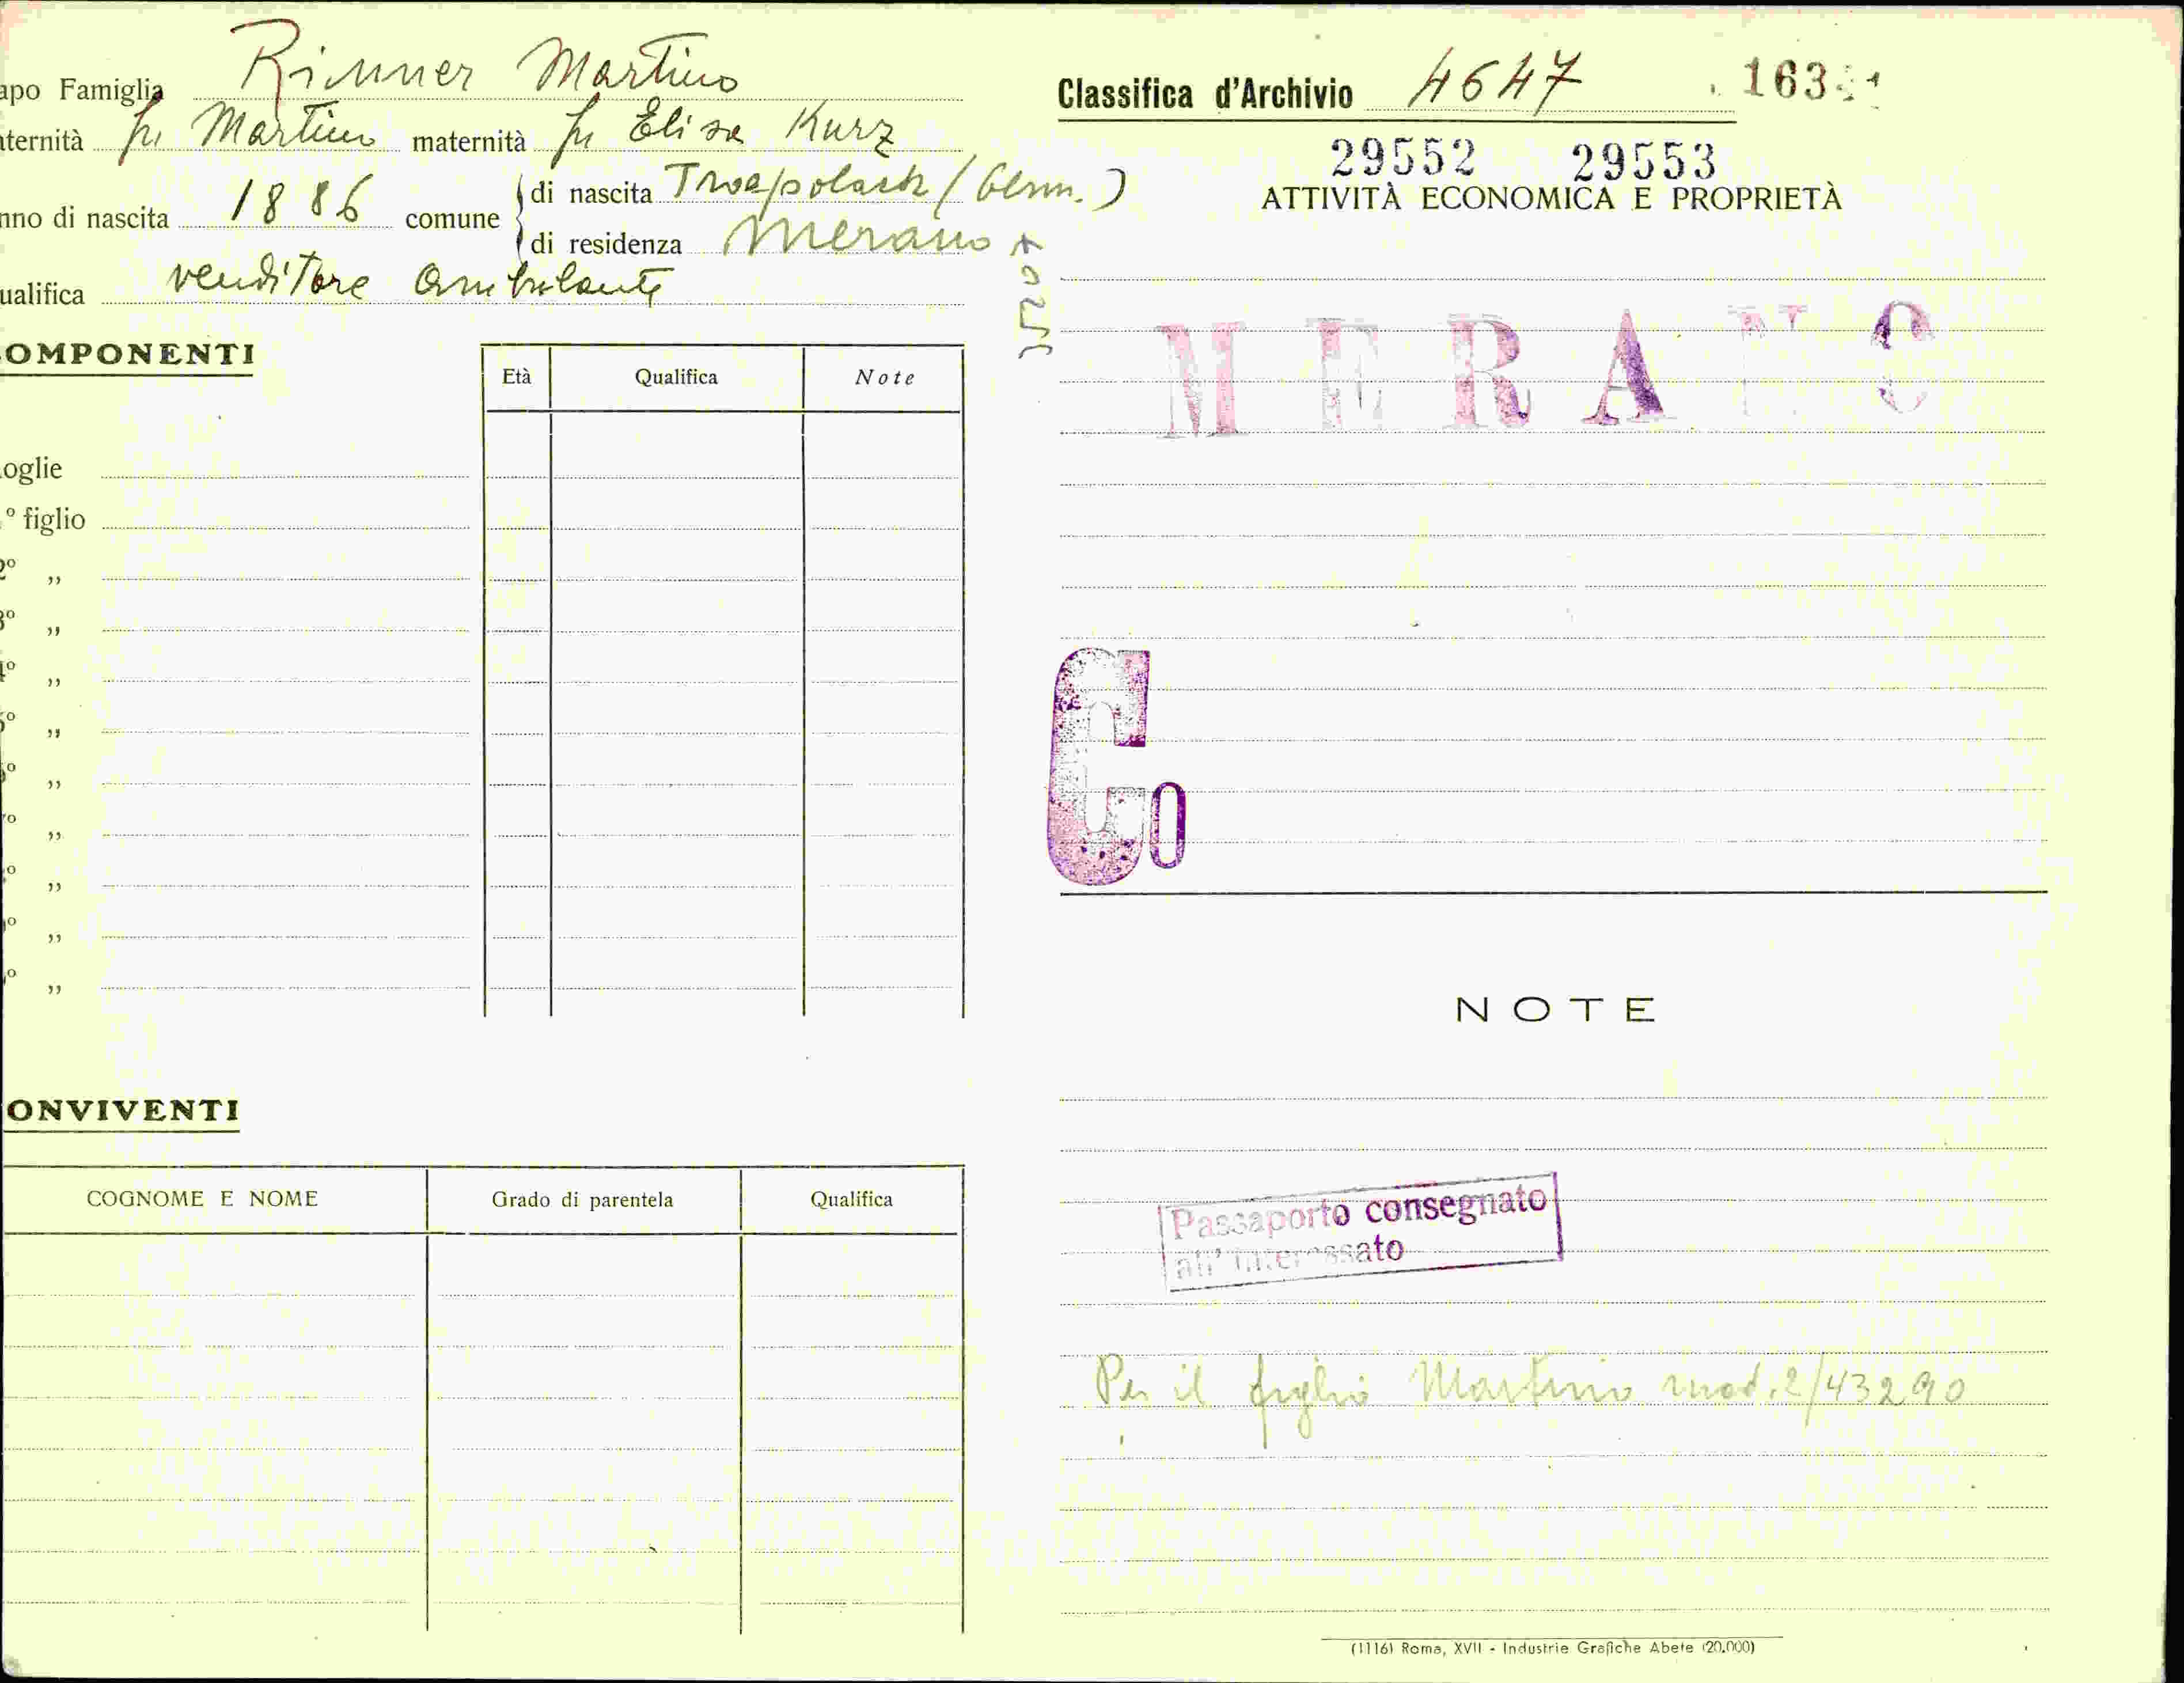 apo Famiglia Rinner Martino
aternità fu Martino maternità fu Elisa Kurz
nno di nascita 1886 comune
di nascita (Germ.)
di residenza Merano
ualifica venditore ambulante
OMPONENTI
Età Qualifica Note
oglie
° figlio
2° „
3° „
4° „
5° „
° „
° „
° „
° „
° „
ONVIVENTI
COGNOME E NOME Grado di parentela Qualifica
Classifica d'Archivio 4647
29552 29553
ATTIVITÀ ECONOMICA E PROPRIETÀ
MERANO
Co
NOTE
Passaporto consegnato
all' interessato
Per il figlio Martino mod. 2/43290
(1116) Roma, XVII - Industrie Grafiche Abete (20.000)